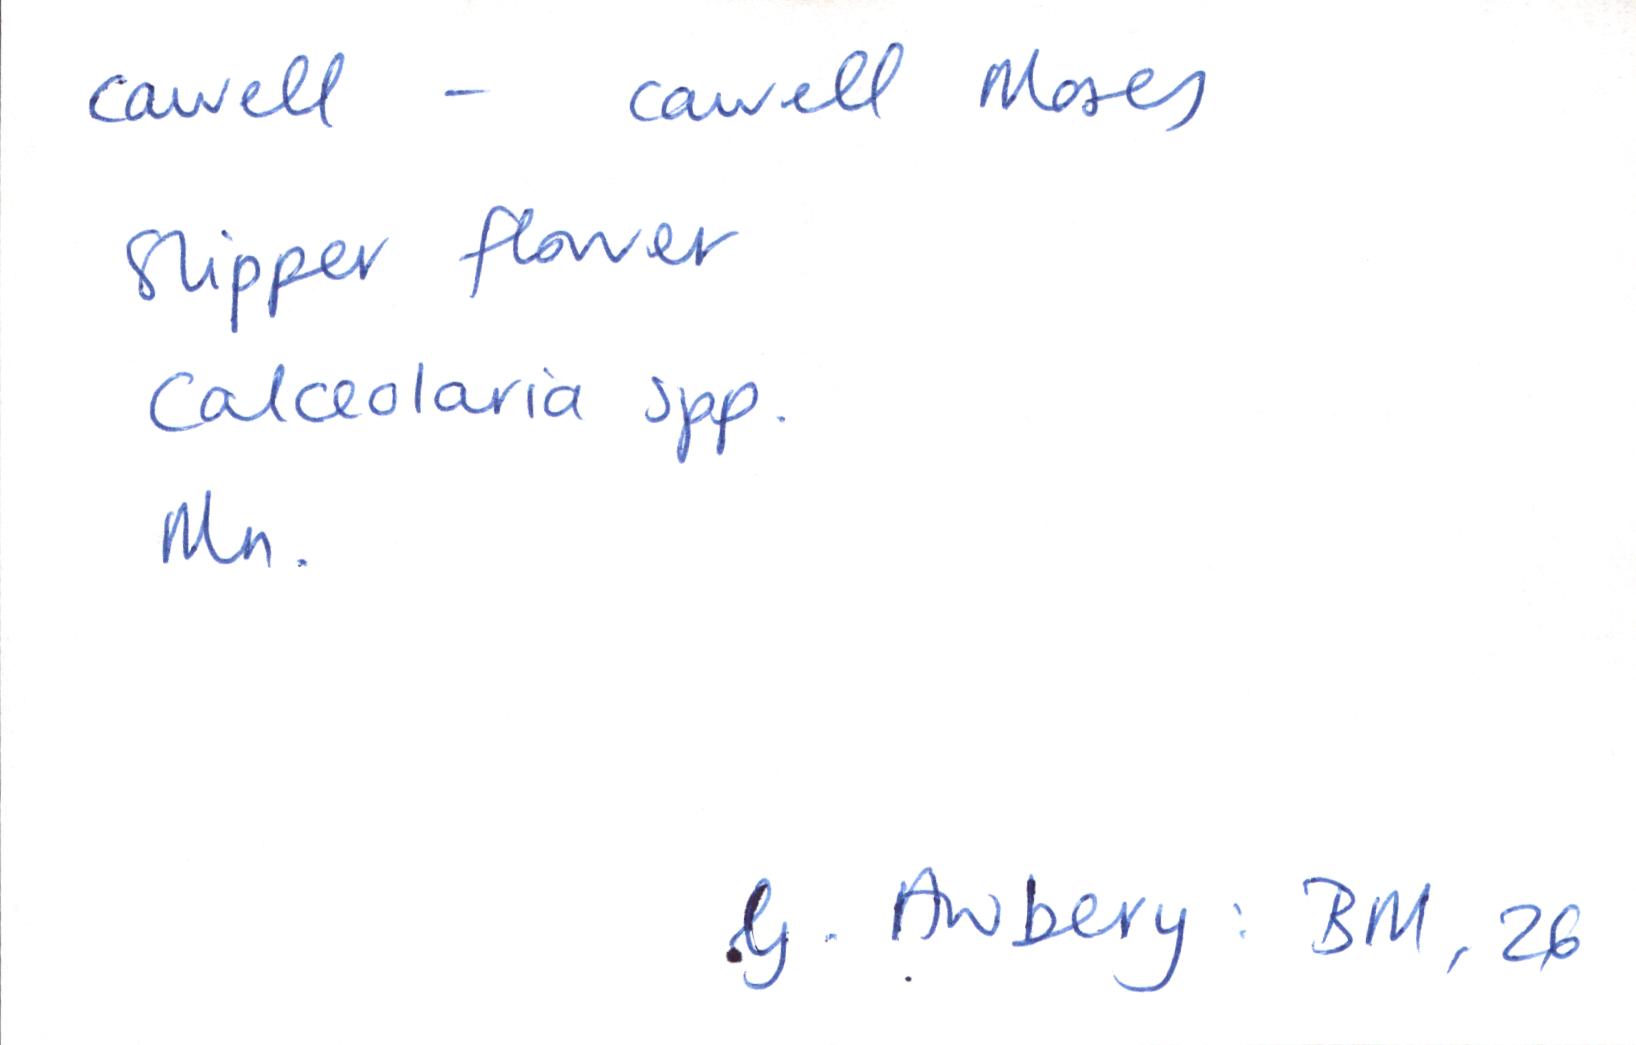 cawell - cawell Moses
Slipper flower
Calceolaria spp.
Mn.
G. Awbery: BM, 26